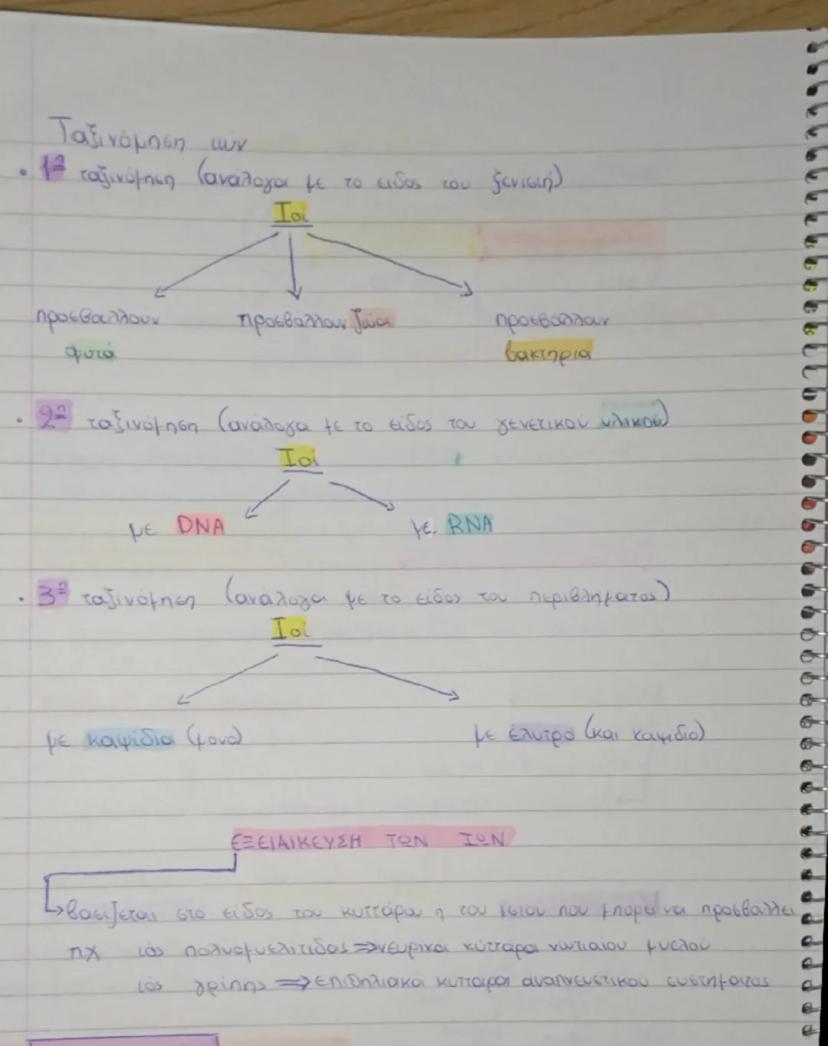 Ταξινόμηση ιων
• 1η ταξινόμηση (ανάλογα με το ειδος του ξενιστή)
Ιοί
προσβαλλουν προσβαλλουν ζώα προσβαλλουν
φυτά βακτήρια
• 2η ταξινόμηση (ανάλογα με το είδος του γενετικού υλικού)
Ιοί
με DNA με RNA
• 3η ταξινόμηση (ανάλογα με το είδος του περιβλήματος)
Ιοί
με καψίδιο (μονο) με έλυτρο (και καψιδιο)
ΕΞΕΙΔΙΚΕΥΣΗ ΤΩΝ ΙΩΝ
βασίζεται στο είδος του κυττάρου η του ιστού που μπορεί να προσβάλλει
πχ ιός πολυομυελίτιδας ⇒ νευρικά κύτταρα νωτιαίου μυελού
ιός γρίπης ⇒ επιθηλιακά κυτταρα αναπνευστικου συστήματος